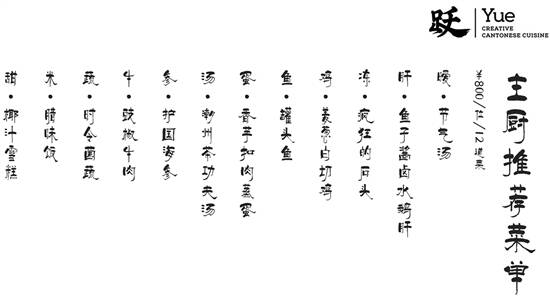 跃 Yue
CREATIVE
CANTONESE CUISINE
主厨推荐菜单
¥800/位/12道菜
暖•节气汤
肝•鱼子酱卤水鹅肝
冻•疯狂的石头
鸡•姜葱白切鸡
鱼•罐头鱼
蛋•香芋扣肉蒸蛋
汤•潮州茶功夫汤
参•护国海参
牛•豉椒牛肉
蔬•时令菌蔬
米•腊味饭
甜•椰汁雪糕